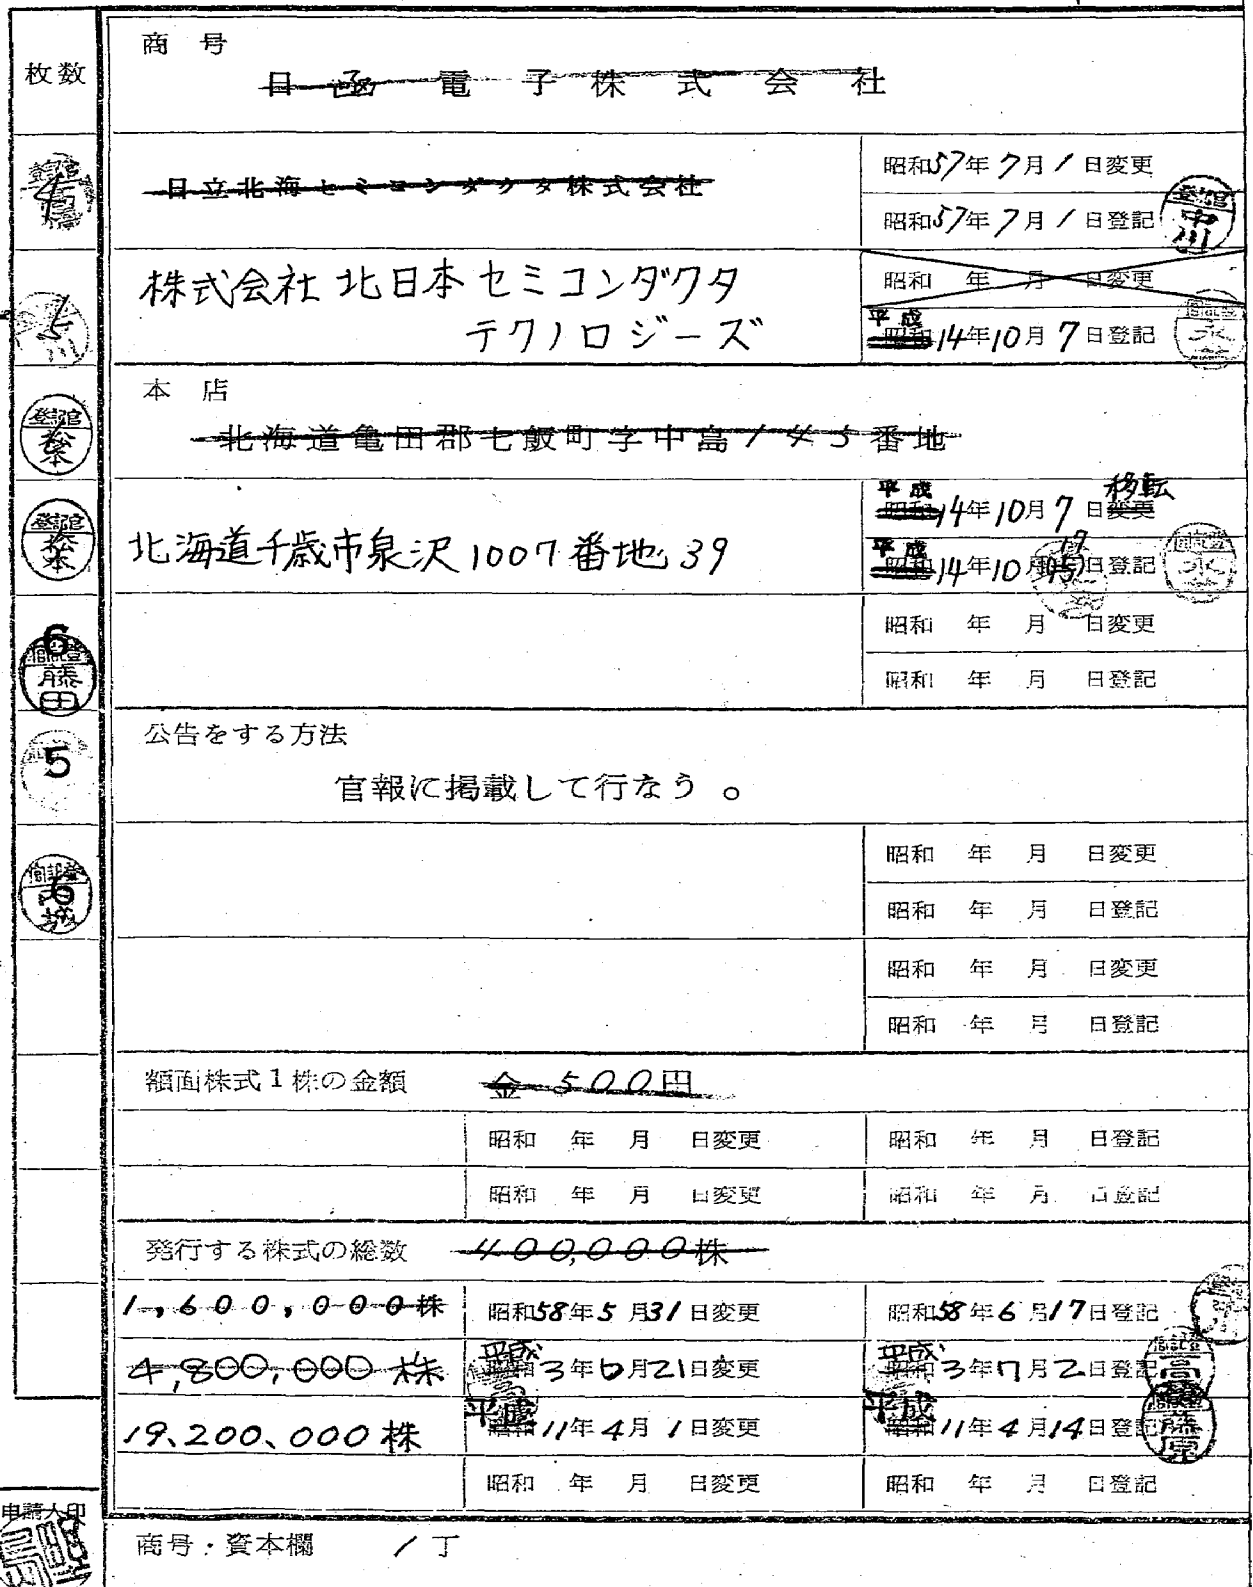 枚数
商号
日函電子株式会社
日立北海セミコンダクタ株式会社
昭和57年7月1日変更
昭和57年7月1日登記
登記官
中川
株式会社北日本セミコンダクタ
テクノロジーズ
昭和 年 月 日変更
平成
昭和14年10月7日登記
本店
北海道亀田郡七飯町字中島145番地
登記官
松本
北海道千歳市泉沢1007番地39
平成 移転
昭和14年10月7日変更
平成 17
昭和14年10月 日登記
登記官
松本
昭和 年 月 日変更
昭和 年 月 日登記
6
藤田
公告をする方法
官報に掲載して行なう。
5
昭和 年 月 日変更
昭和 年 月 日登記
6
昭和 年 月 日変更
昭和 年 月 日登記
額面株式1株の金額 金500円
昭和 年 月 日変更 昭和 年 月 日登記
昭和 年 月 日変更 昭和 年 月 日登記
発行する株式の総数 400,000株
1,600,000株 昭和58年5月31日変更 昭和58年6月17日登記
平成 平成
4,800,000株 昭和3年6月21日変更 昭和3年7月2日登記
平成 平成
19、200、000株 昭和11年4月1日変更 昭和11年4月14日登記
藤原
昭和 年 月 日変更 昭和 年 月 日登記
申請人印
商号・資本欄 1丁